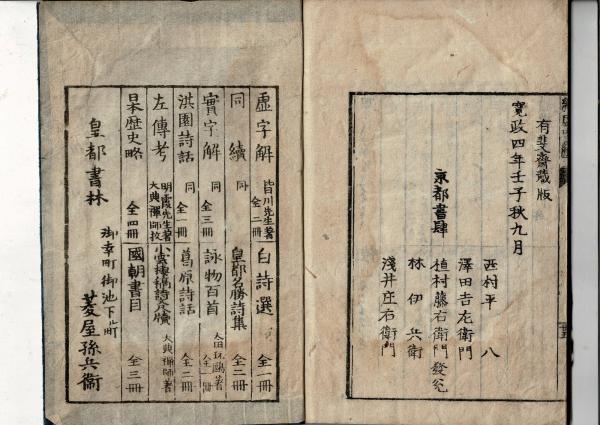 有斐齋蔵版
寛政四年壬子秋九月
京都書肆
西村平八
澤田吉左衛門
植村藤右衛門發兌
林伊兵衛
淺井庄右衛門
虚字解 皆川先生著 全二冊 白詩選 全一冊
同續 同 皇都名勝詩集 全二冊
實字解 同 全三冊 詠物百首 全一冊
淇園詩話 同 全一冊 葛原詩話 全二冊
左傳考 明霞先生著 大典禪師校 小雲棲稿詩文牘 大典禪師著
日本歴史略 全四冊 國朝書目 全三冊
皇都書林
御幸町御池下ル町
菱屋孫兵衛